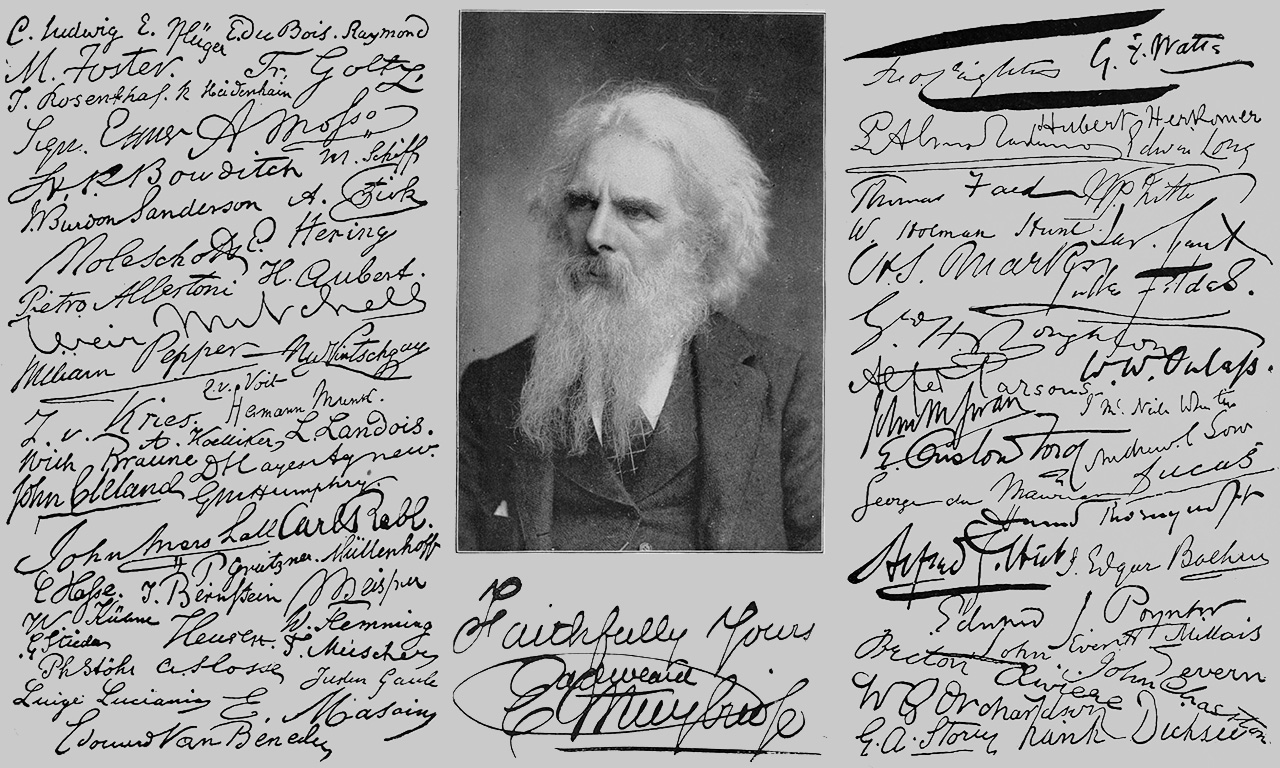 C. Ludwig E. Pflüger E. du Bois-Raymond
M. Foster. Fr. Goltz
J. Rosenthal. R Heidenhain
Sigm. Exner A Mosso
H. P. Bowditch M. Schiff
J. Burdon Sanderson A. Fick
Moleschott E. Hering
Pietro Albertoni H. Aubert.
Weir Mitchell
William Pepper M v Vintschgau
C. v. Voit
J. v. Kries. Hermann Munk.
A. Koelliker, L Landois.
Wilh Braune D Hayes Agnew.
John Cleland GM Humphry.
John Marshall Carl Rabl.
P Grützner. Müllenhoff
C Hasse. J. Bernstein Meissner
W. Kühne W. Flemming
Hensen. F. Miescher
Ph Stöhr A. Mosso Justus Gaule
Luigi Luciani E. Masoin
Edouard Van Beneden
Faithfully Yours
Eadweard Muybridge
G. F. Watts
Fred Leighton
L Alma Tadema Hubert Herkomer
Edwin Long
Thomas Faed W P Frith
W. Holman Hunt.
H. S. Marks
Luke Fildes.
Geo H. Boughton
Alfred Parsons W. W. Ouless.
John M Swan J Mc Neill Whistler
E. Onslow Ford Andrew C Gow
George du Maurier Lucas
Hamo Thornycroft
Alfred Gilbert J. Edgar Boehm
Edward J. Poynter
Briton Riviere John Everett Millais
W Q Orchardson
G. A. Storey Frank Dicksee